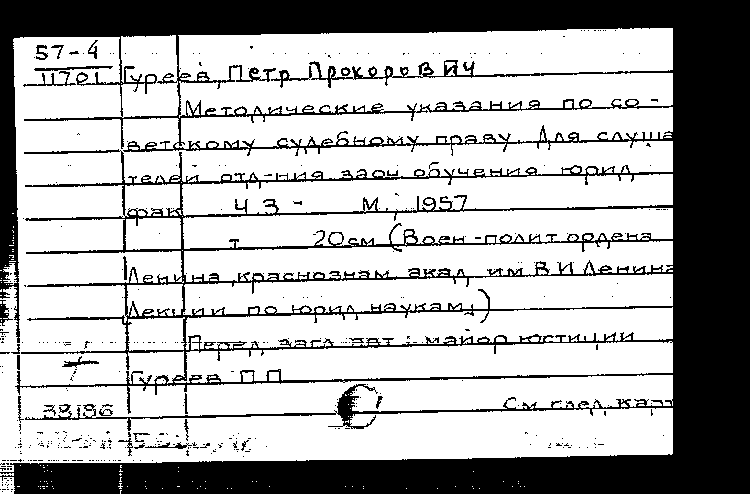 57-4
11701 Гуреев, Петр Прокорович
Методические указания по со-
ветскому судебному праву. Для слуша
телей отд-ния заоч обучения юрид
фак Ч.3 - М., 1957
т 20см (Воен-полит ордена
Ленина, краснознам акад, им В И Ленина
Лекции по юрид наукам.)
Перед загл авт: майор юстиции
Гуреев П П
38186
См след. карт